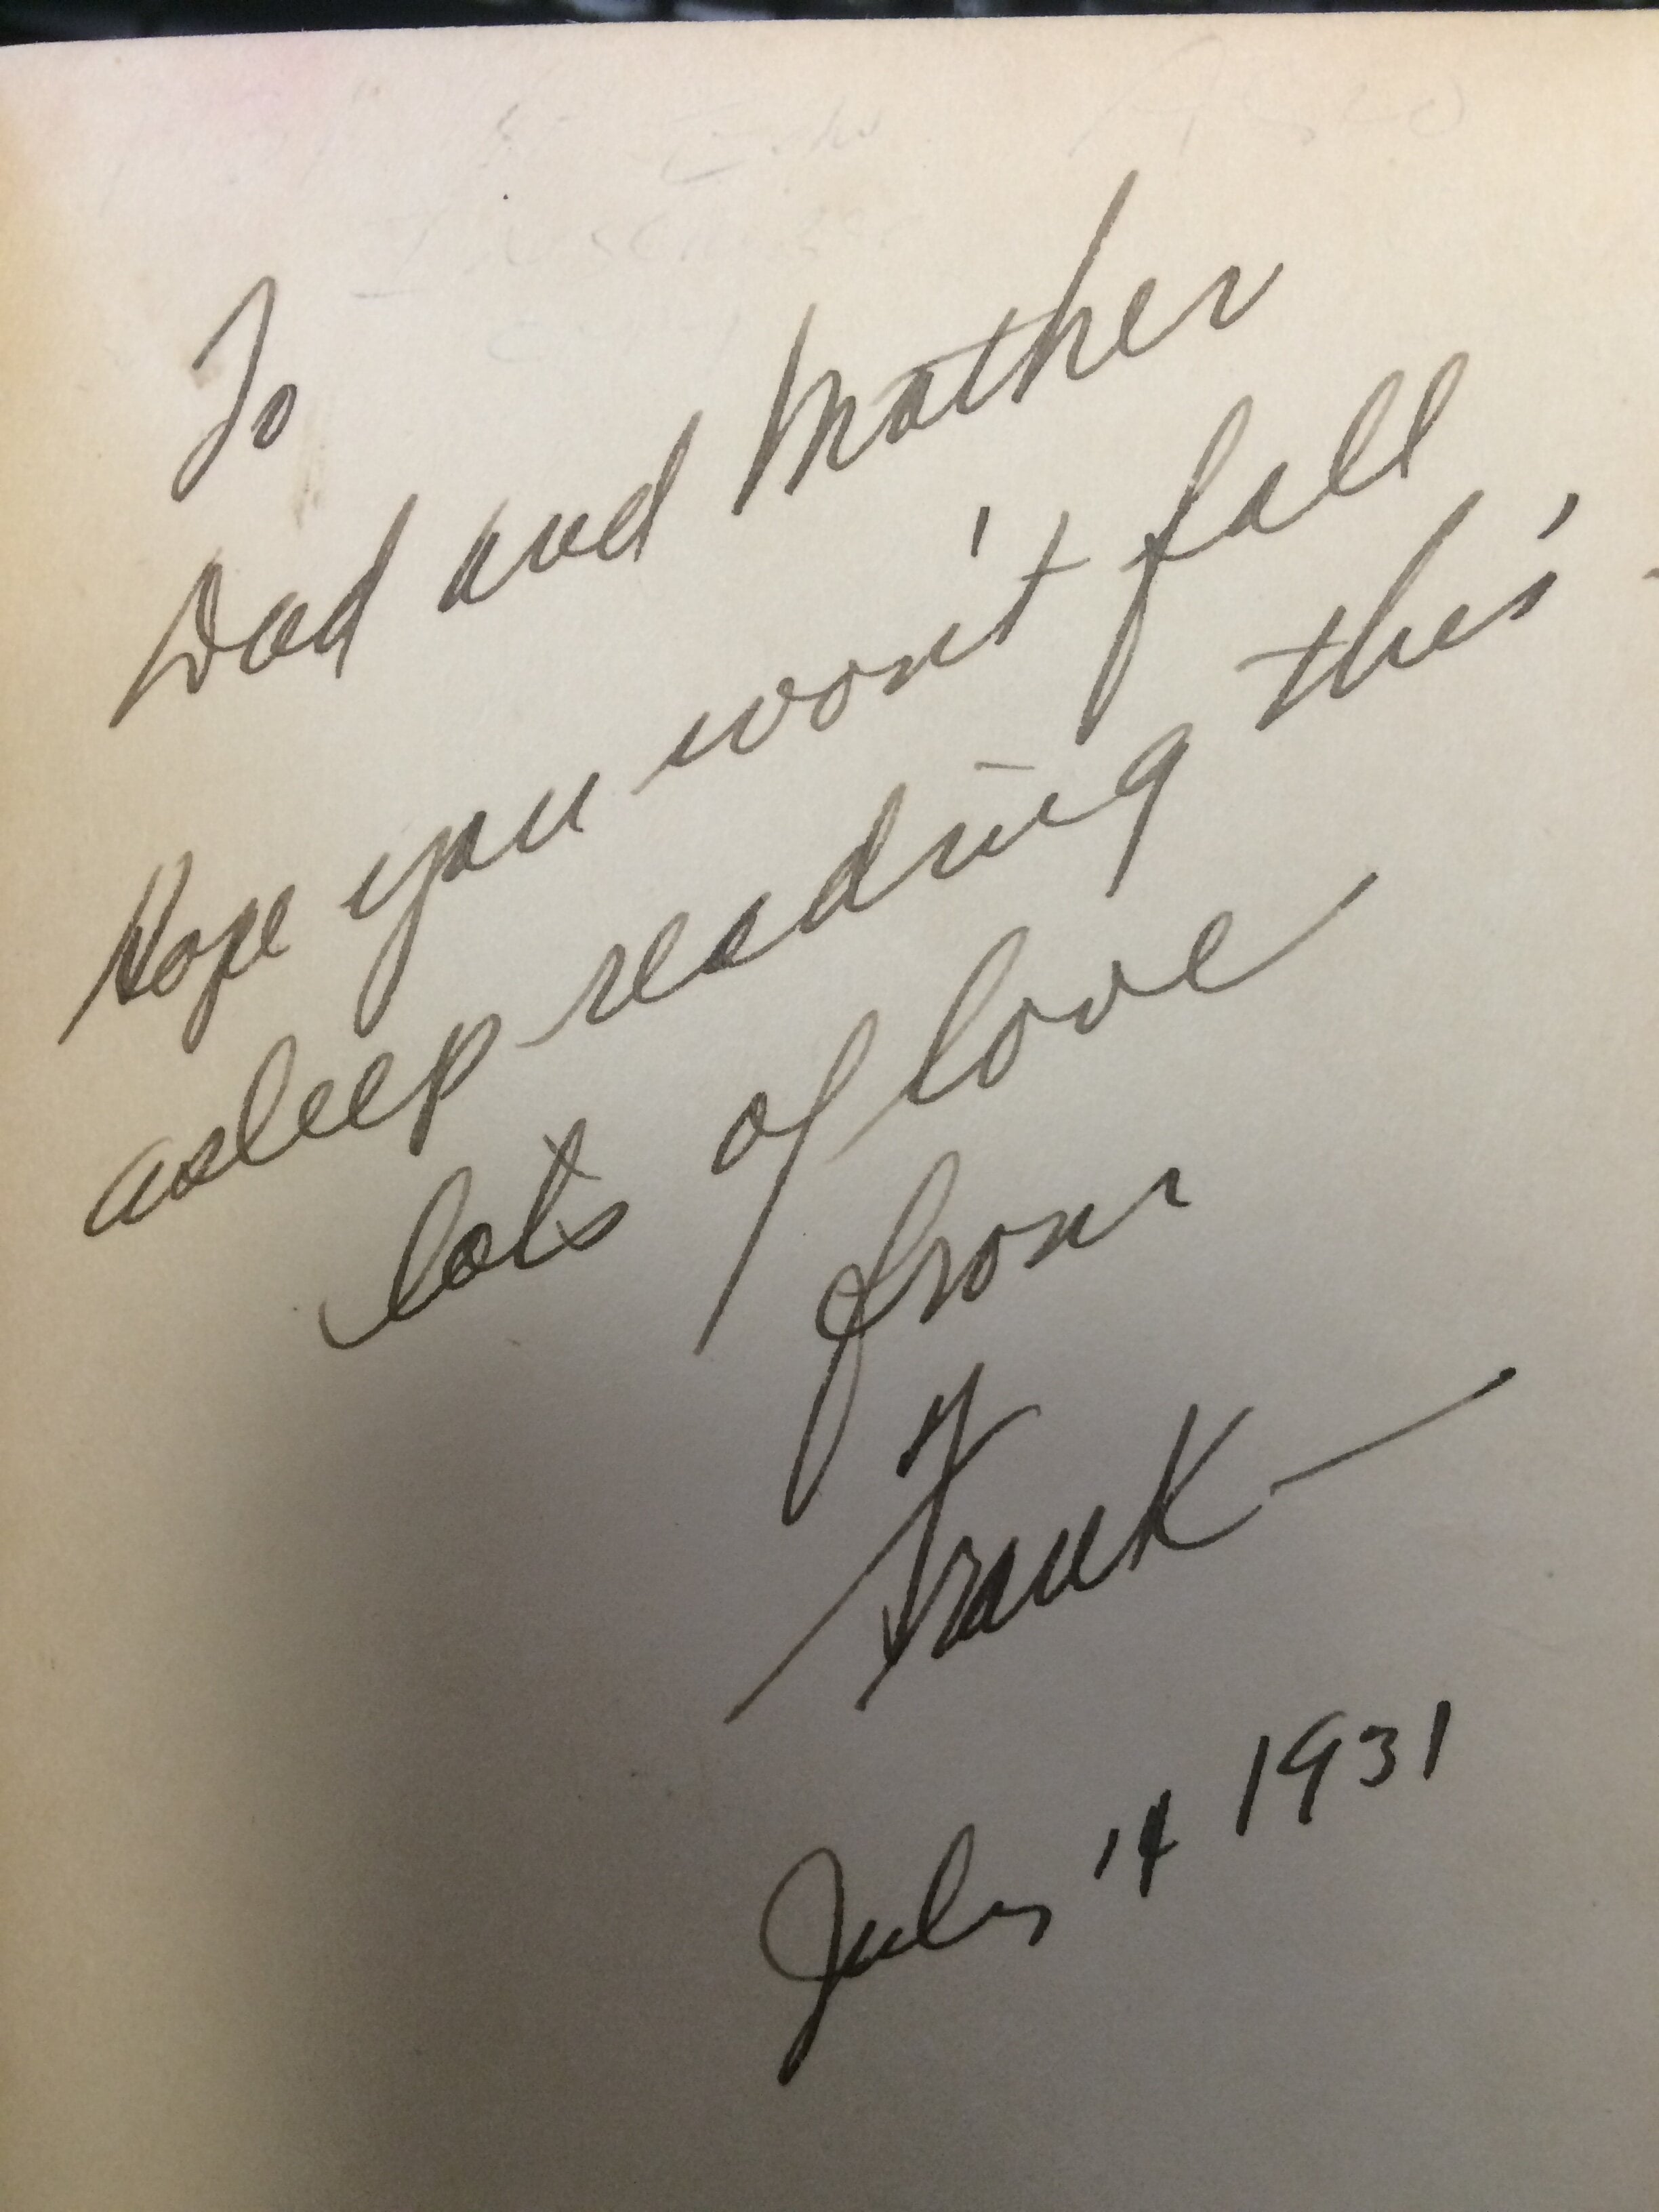 To
Dad and Mother
Hope you won't fall
asleep reading this -
lots of love
from
Frank —
July 14 1931